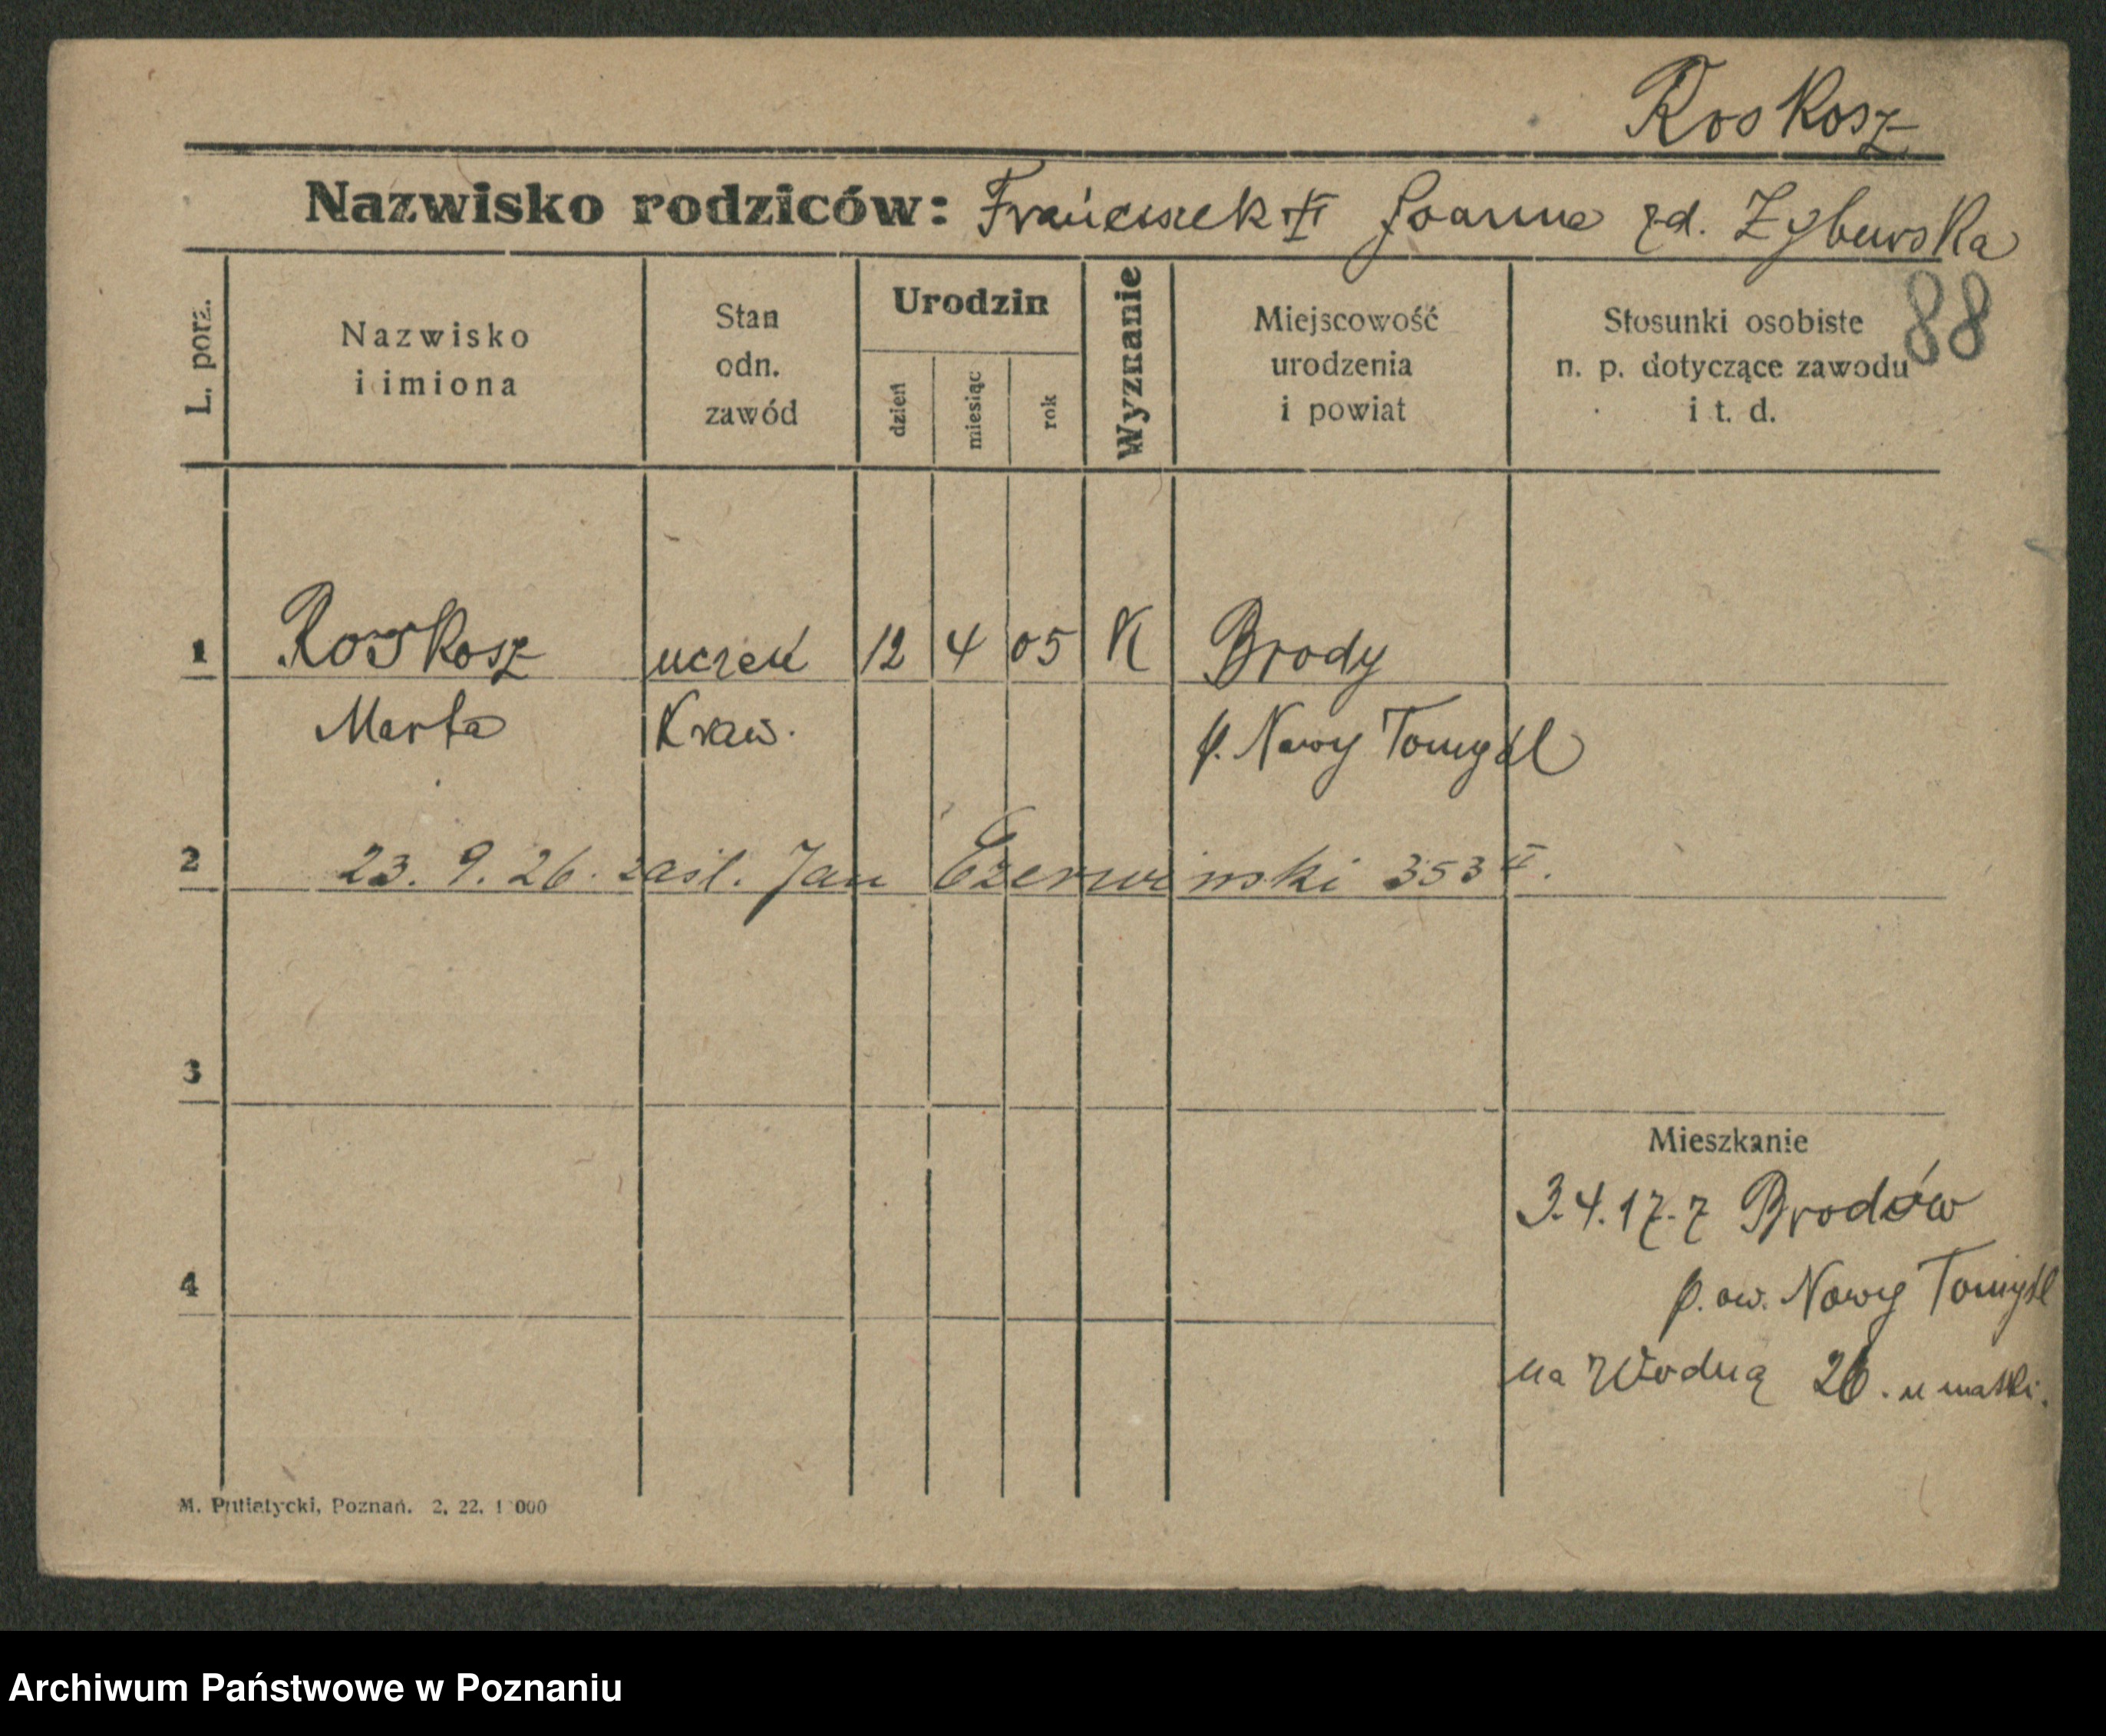 Roskosz
Nazwisko rodziców: Franciszek II Joanna zd. Zyburska
88
L. porz.
Nazwisko
i imiona
Stan
odn.
zawód
Urodzin
dzień
miesiąc
rok
Wyznanie
Miejscowość
urodzenia
i powiat
Stosunki osobiste
n. p. dotyczące zawodu
i t. d.
1 Roskosz uczeń 12 4 05 K Brody
Marta Kraw. p. Nowy Tomyśl
2 23. 9. 26. zaśl. Jan Czerwinski 353 II.
3
Mieszkanie
3.4.17. z Brodów
4
pow. Nowy Tomyśl
na Wodną 26. u matki.
M. Putiatycki, Poznań. 2. 22. 1 000
Archiwum Państwowe w Poznaniu